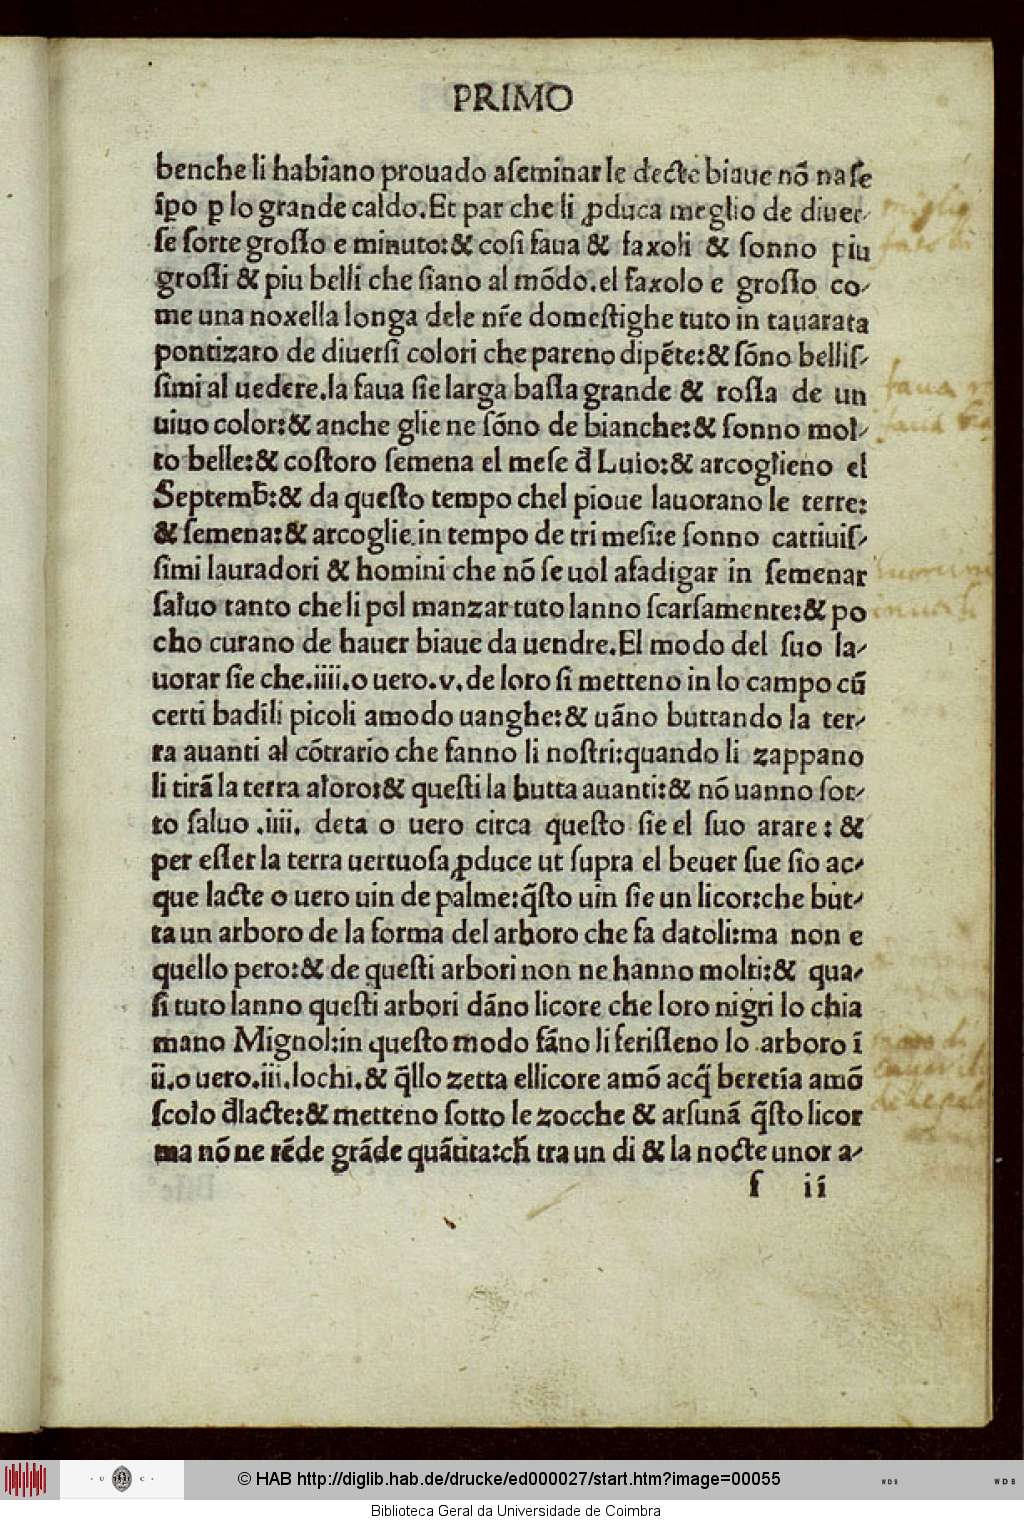 PRIMO
benche li habiano prouado aſeminar le decte biaue nõ naſẽ
ĩpo ꝑ lo grande caldo.Et par che li ꝓduca meglio de diuer-
ſe ſorte groſſo e minuto:& coſi faua & faxoli & ſonno piu
groſſi & piu belli che ſiano al mõdo.el faxolo e groſſo co-
me una noxella longa dele nr̃e domeſtighe tuto in tauarata
pontizato de diuerſi colori che pareno dipẽte:& ſõno belliſ-
ſimi al uedere.la faua ſie larga baſſa grande & roſſa de un
uiuo color:& anche glie ne ſõno de bianche:& ſonno mol-
to belle:& coſtoro ſemena el meſe đ Luio:& arcoglieno el
Septemb̃:& da queſto tempo chel pioue lauorano le terre:
& ſemena:& arcoglie in tempo de tri meſi:e ſonno cattiuiſ-
ſimi lauradori & homini che nõ ſe uol afadigar in ſemenar
ſaluo tanto che li pol manzar tuto lanno ſcarſamente:& po
cho curano de hauer biaue da uendre.El modo del ſuo la-
uorar ſie che.iiii.o uero.v.de loro ſi metteno in lo campo cũ
certi badili picoli amodo uanghe:& uãno buttando la ter-
ra auanti al cõtrario che fanno li noſtri:quando li zappano
li tirã la terra aloro:& queſti la butta auanti:& nõ uanno ſot-
to ſaluo .iiii. deta o uero circa queſto ſie el ſuo arare : &
per eſſer la terra uertuoſa ꝓduce ut ſupra el beuer ſue ſio ac-
que lacte o uero uin de palme:q̃ſto uin ſie un licor:che but-
ta un arboro de la forma del arboro che fa datoli:ma non e
quello pero:& de queſti arbori non ne hanno molti:& qua-
ſi tuto lanno queſti arbori dãno licore che loro nigri lo chia
mano Mignol:in queſto modo fãno li feriſſeno lo arboro ĩ
ii.o uero.iii.lochi.& q̃llo zetta ellicore amõ acq̃ beretĩa amõ
ſcolo đlacte:& metteno ſotto le zocche & arſunã q̃ſto licor
ma nõ ne rẽde grãde quãtita:ch̃ tra un di & la nocte unor a-
ſ ii
miglio
faua
faua
modo di
© HAB http://diglib.hab.de/drucke/ed000027/start.htm?image=00055
Biblioteca Geral da Universidade de Coimbra